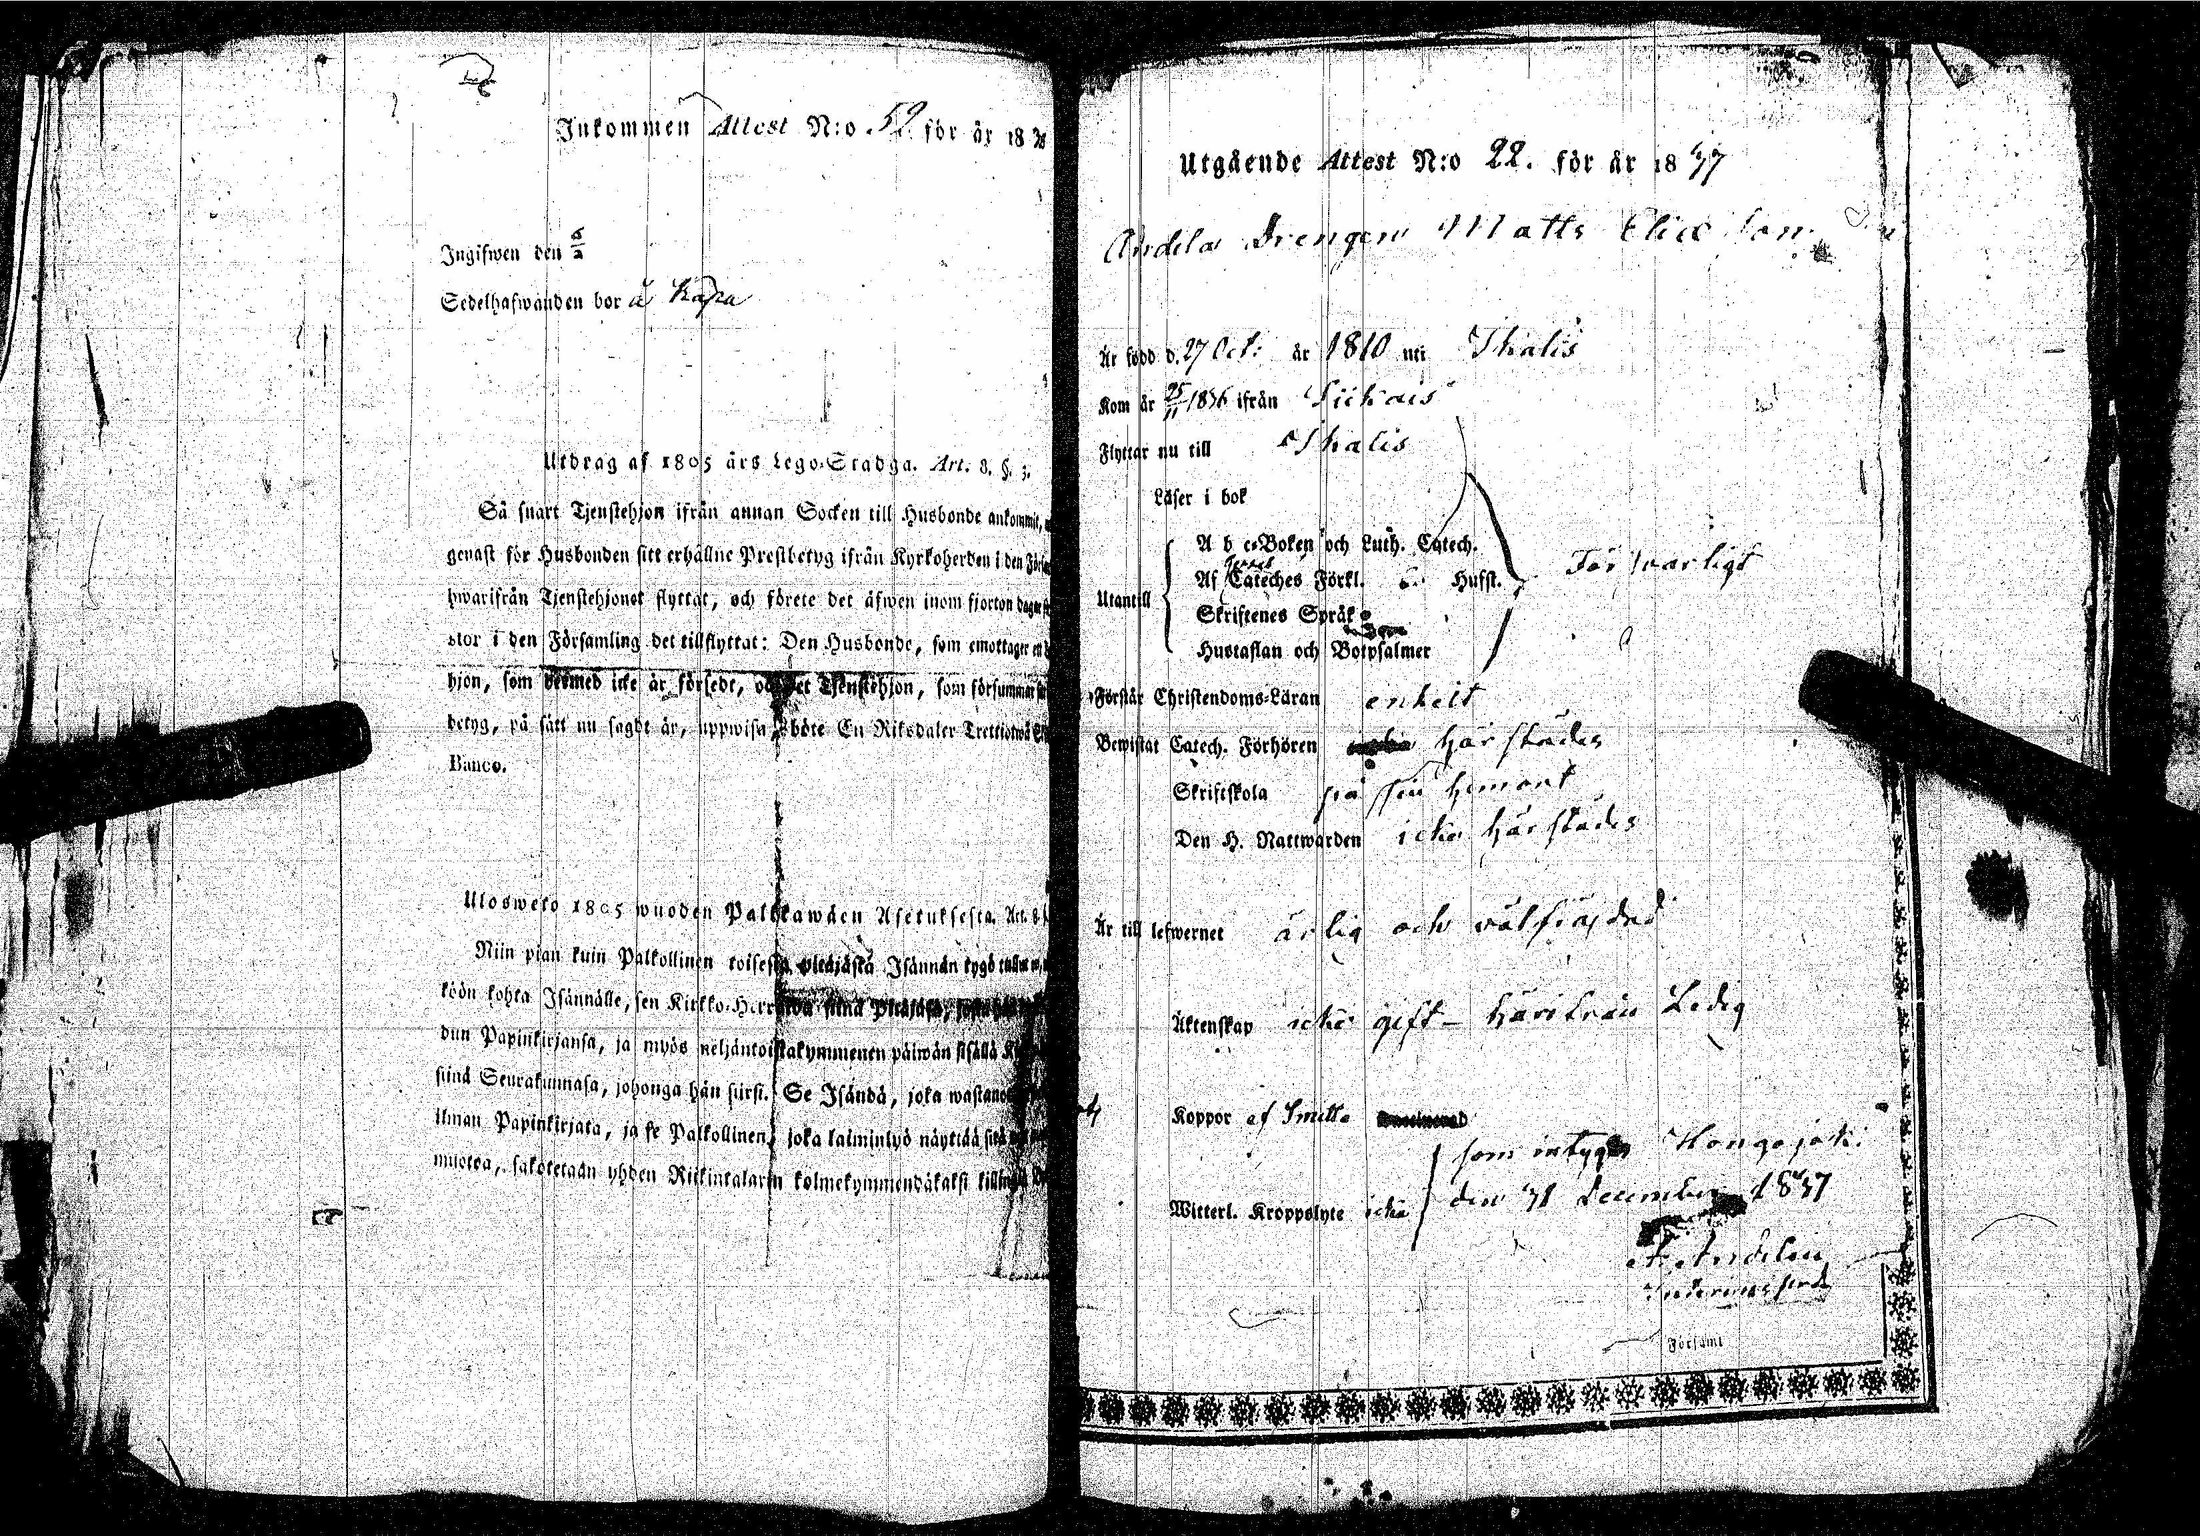 Inkommen Attest N:o 52 för år 18
Ingifwen den 6/2
Sedelhafwanden bor å Kåpa
Utdrag af 1805 års Lego-Stadga. Art. 8. §. 3.
Så snart Tjenstehjon ifrån annan Socken till Husbonde ankommit,
genast för Husbonden sitt erhållne Prestbetyg ifrån Kyrkoherden i den
hwarifrån Tjenstehjonet flyttat, och förete det äfwen inom fjorton dagar
stor i den Församling det tillflyttat: Den Husbonde, som emottager
hjon, som dermed icke är försedt, och det Tjenstehjon, som försummar
betyg, på sätt nu sagdt är, uppwisa, böte En Riksdaler Trettiotwå
Banco.
Ulosweto 1805 wuoden Palkkawäen Asetuksesta. Art. 8.
Niin pian kuin Palkollinen toisesta pitäjästä Isännän tygö
köön kohta Isännälle, sen Kirkko-Herralda siinä Pitäjäsä,
dun Papinkirjansa, ja myös neljäntoistakymmenen päiwän sisällä
siinä Seurakunnasa, johonga hän siirsi. Se Isändä, joka
ilman Papinkirjata, ja se Palkollinen, joka laiminlyö näyttää
muotoa, sakotetaan yhden Riikinkalarin kolmekymmendäkaksi
Utgående Attest N:o 22. för år 1837
Drengen Matts Elias son
Är född d. 27 Oct: år 1810 uti Thalis
Kom år 25/11 1836 ifrån
Flyttar nu till Thalis
Läser i bok
A b c-Boken och Luth. Catech.
Af Cateches Förkl. Husst.
Utantill
Försvarligt
Skriftenes Språk
Hustaflan och Botpsalmer
Förstår Christendoms-Läran enkelt
Bewistat Catech. Förhören härstädes
Skriftskola på sin hemort
Den H. Nattwarden icke härstädes
Är till lefwernet ärlig och välfräjdad
Äktenskap icke gift - härifrån Ledig
Koppor af Smitta
som intygas Hongojoki
Witterl. Kroppslyte icke
den 31 December 1837
Församl